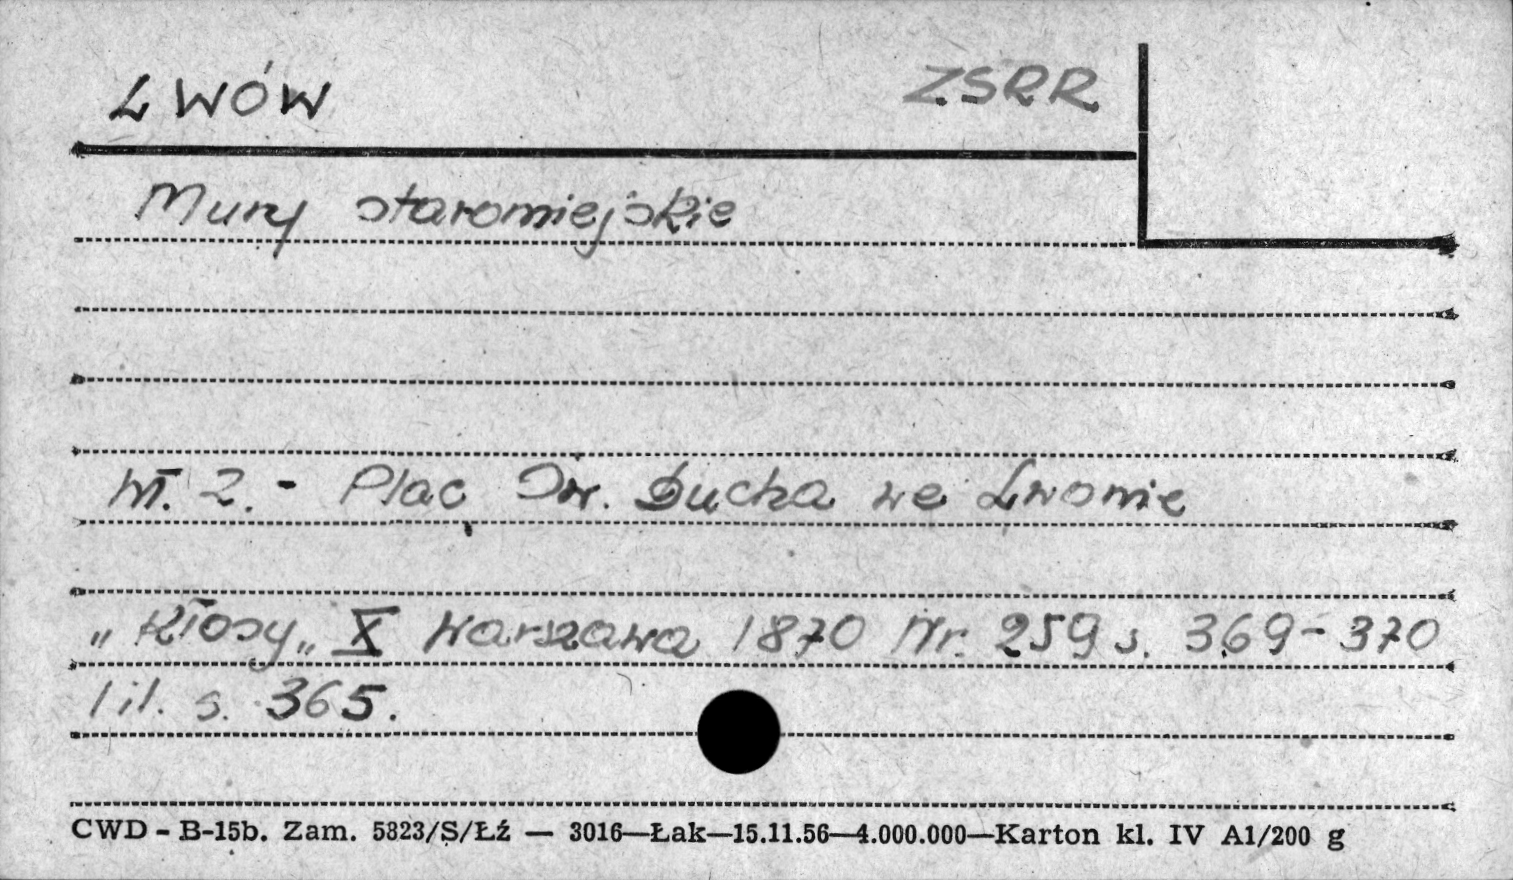 LWÓW ZSRR
Mury staromiejskie
Wł. Z. - Plac Św. Ducha we Lwowie
„Kłosy„ X Warszawa 1870 Nr. 259 s. 369-370
1 il. s. 365.
CWD - B-15b. Zam. 5823/S/Łź — 3016—Łak—15.11.56—4.000.000—Karton kl. IV A1/200 g